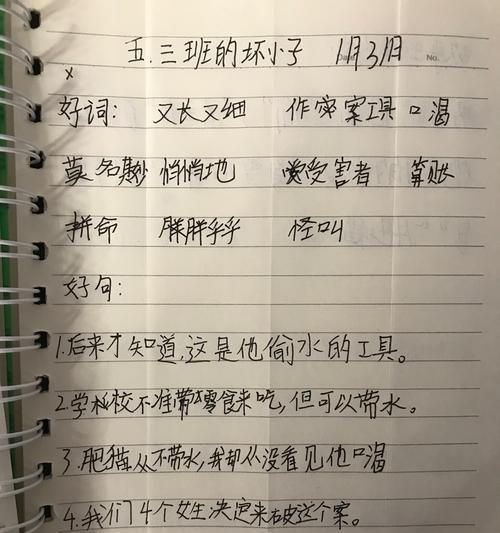 五.三班的坏小子 1月31日
Date No.
x
好词: 又长又细 作案工具 口渴
莫名其妙 悄悄地 受害者 算账
拼命 胖胖乎乎 怪叫
好句:
1.后来才知道,这是他偷水的工具。
2.学校不准带零食来吃,但可以带水。
3.肥猫从不带水,我却从没看见他口渴
4.我们4个女生决定来破这个案。